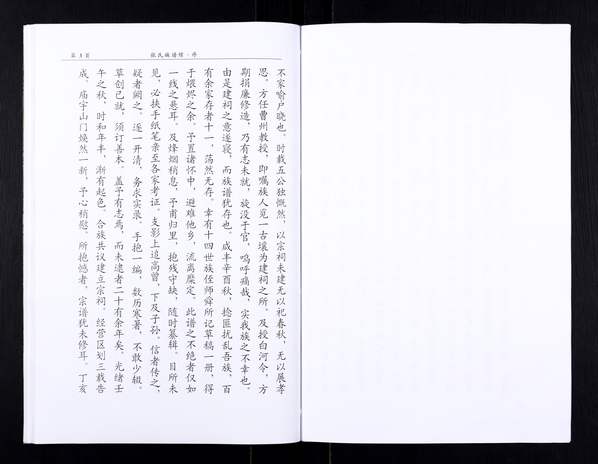 张氏族谱续·序
第3页
不家喻户晓也。时载五公独慨然,以宗祠未建无以祀春秋,无以展孝
思,方任曹州教授,即嘱族人觅一古壤为建祠之所。及授白河令,方
期捐廉修造,乃有志未就,旋没于官,呜呼痛哉,实我族之不幸也。
由是建祠之意遂寝,而族谱犹存也。咸丰辛酉秋,捻匪扰乱吾族,百
有余家存者十一,荡然无存。幸有十四世族侄师舜所记草稿一册,得
于煨烬之余。予置诸怀中,避难他乡,流离靡定。此谱之不绝者仅如
一线之悬耳。及烽烟稍息,予甫归里,抱残守缺,随时纂辑。目所未
见,必挟手纸笔亲至各家考证。支影上追高曾,下及子孙。信者传之,
疑者阙之。逐一开清,务求实录,手抱一编,数历寒暑,不敢少辍。
草创已就,须订善本。盖予有志焉,而未逮者二十有余年矣。光绪壬
午之秋,时和年丰,渐有起色。合族共议建立宗祠。经营区划三载告
成,庙宇山门焕然一新,予心稍慰。所抱憾者,宗谱犹未修耳。丁亥